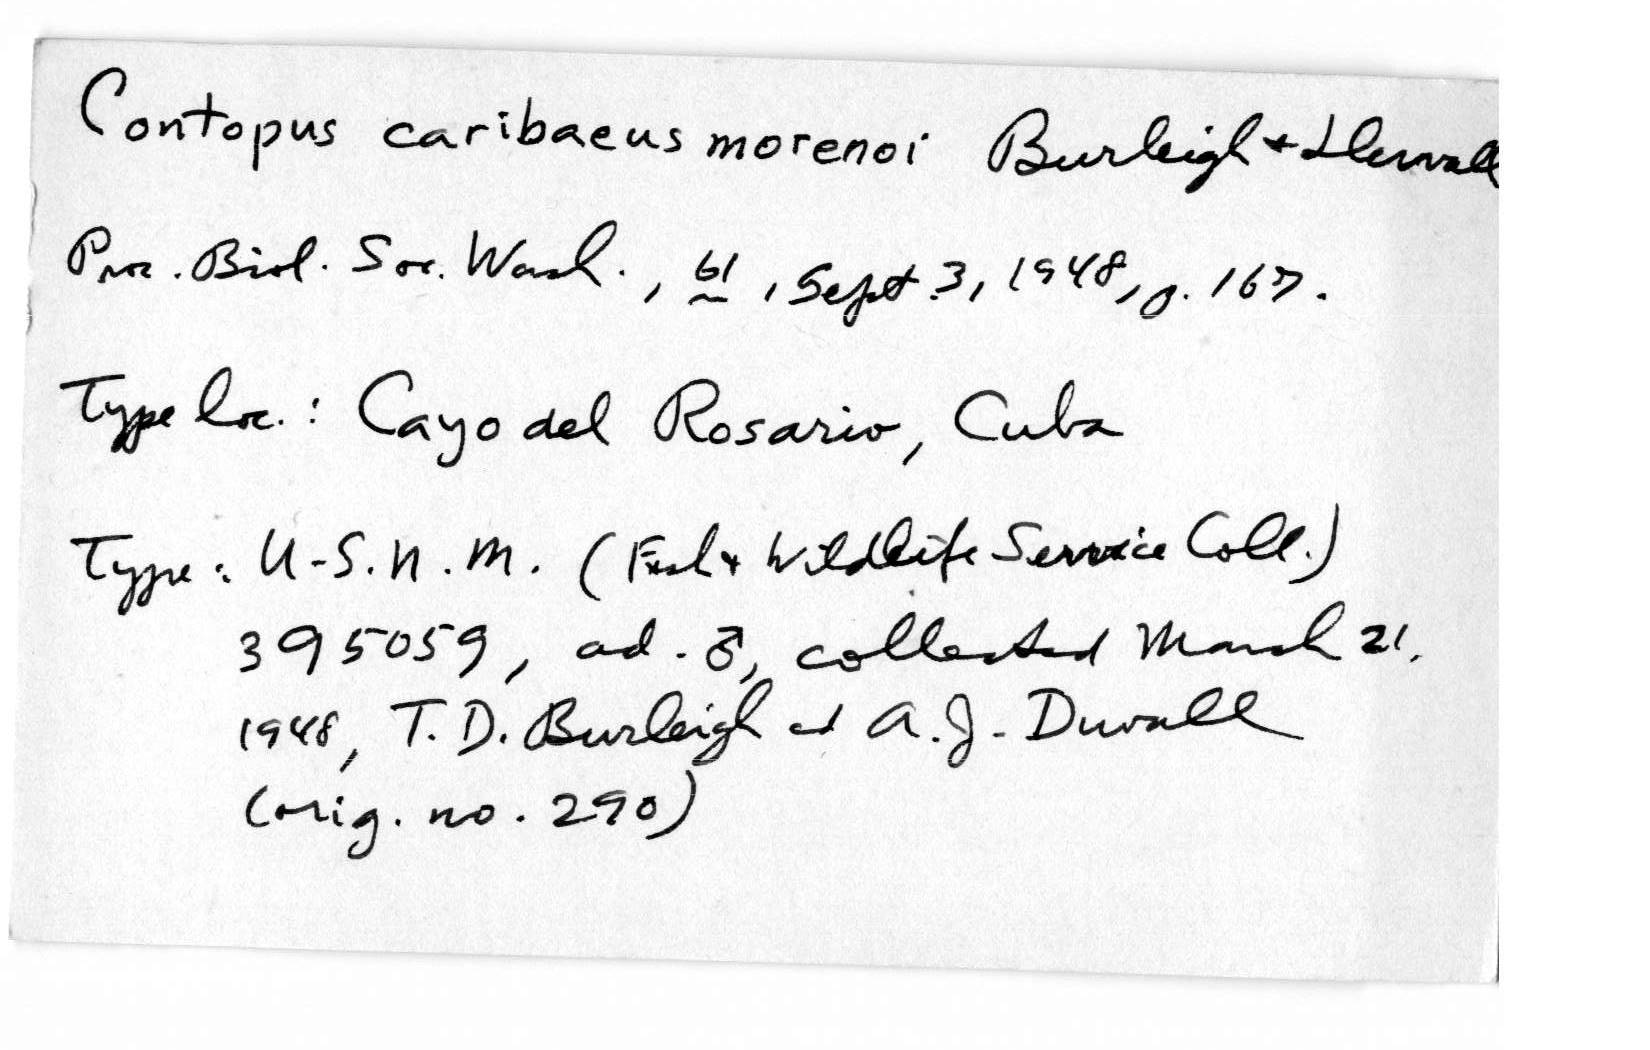 Contopus caribaeus morenoi Burleigh + Duvall
Proc. Biol. Soc. Wash., 61, Sept. 3, 1948, p. 167.
Type loc.: Cayo del Rosario, Cuba
Type: U.S.N.M. (Fish + Wildlife Service Coll.)
395059, ad. ♂, collected March 21,
1948, T.D. Burleigh and A.J. Duvall
(orig. no. 290)